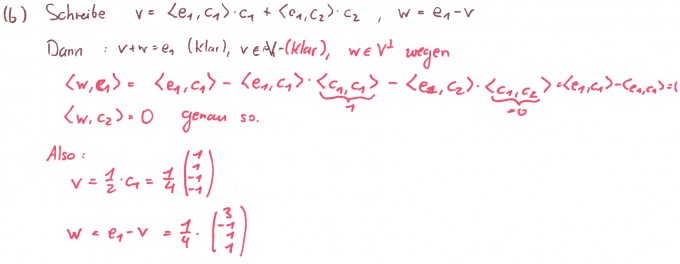 (b) Schreibe v = <e₁, c₁>·c₁ + <e₁, c₂>·c₂ , w = e₁-v
Dann : v+w = e₁ (klar), v ∈ V (klar), w ∈ V^⊥ wegen
<w, c₁> = <e₁, c₁> - <e₁, c₁>·<c₁, c₁> - <e₁, c₂>·<c₁, c₂> = <e₁, c₁> - <e₁, c₁> = 0
1 =0
<w, c₂> = 0 genau so.
Also :
v = 1/2 · c₁ = 1/4 (1 1 -1 -1)
w = e₁-v = 1/4 · (3 -1 1 1)